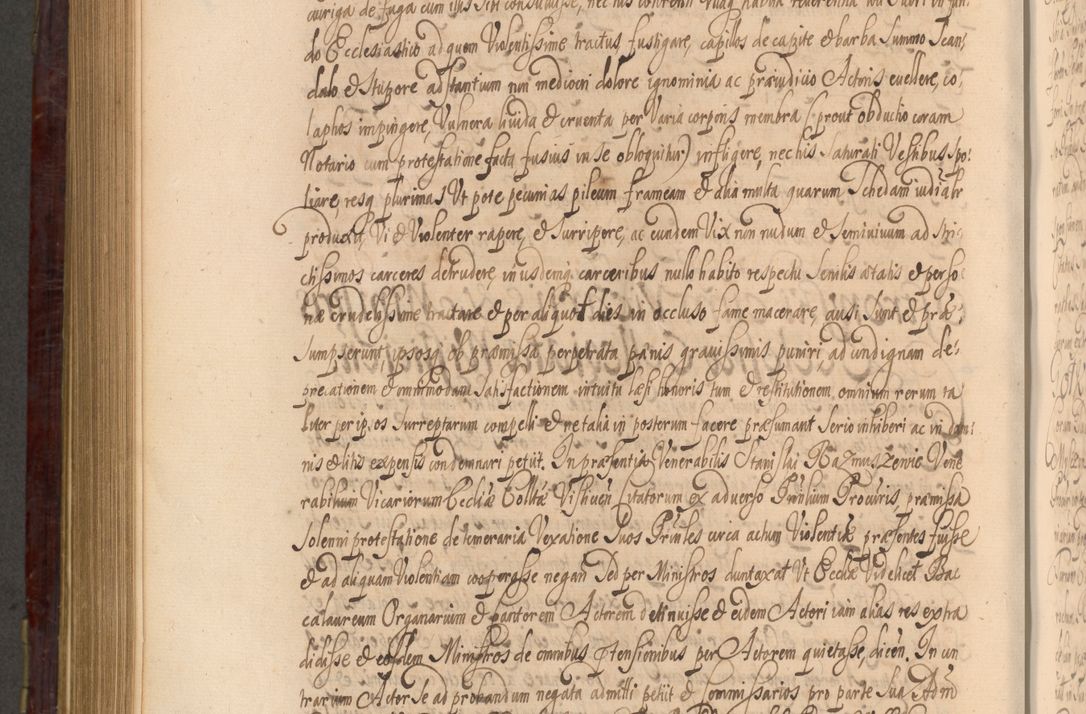 auriga de fuga cum illis sibi consuluisse, nec his contenti
do Ecclesiastico ad quem Violentissime tractus fustigare, capillos de capite et barba Summo Scan,
dalo et stupore adstantium non mediocri dolore ignominia ac præiudicio Actoris evellere, co,
laphos impingere, Vulnera livida et cruenta per Varia corporis membra (prout obductio coram
Notario cum protestatione facta fusius in se obloquitur) infligere, nec his Saturati Vestibus spo,
liare, resq plurimas Ut pote pecunias pileum frameam et alia multa quarum Schedam iudiālr
producet, Vi et Violenter rapere, et Surripere, ac eundem Vix non nudum et Seminivum ad stri,
ctissimos carceres detrudere, in iisdemq carceribus nullo habito respectu Senilis ætatis et perso
næ crudelissime tractare et per aliquot dies in occluso fame macerare, ausi Sunt et præ,
Sumpserunt, ipsosq ob præmissa perpetrata pænis gravissimis puniri, ad condignam de,
precationem et omnimodam Satisfactionem intuitu læsi honoris tum et restitutionem omnium rerum ta
liter per ipsos Surreptarum compelli et ne talia in posterum facere præsumant Serio inhiberi ac in dam,
nis et litis expensis condemnari petiit. In præsentia Venerabilis Stanislai Vene
rabilium Vicariorum Eccliæ Colltæ Citatorum ex adverso Prnlium Procuris, præmissa
Solenni protestatione de temeraria Vexatione Suos Prnles circa actum Violentiæ præsentes fuisse
et ad aliquam Violentiam cooperasse negan Sed per Ministros duntaxat Ut Eccliæ Videlicet Bac
calaureum Organarium et Cantorem Actorem detinuisse et eidem Actori iam alias res extra
didisse et eosdem Ministros de omnibus prtensionibus per Actorem quietasse, dicen. In con
trarium Actor Se ad probandum negata admitti petiit et Commissarios pro parte Sua Adm